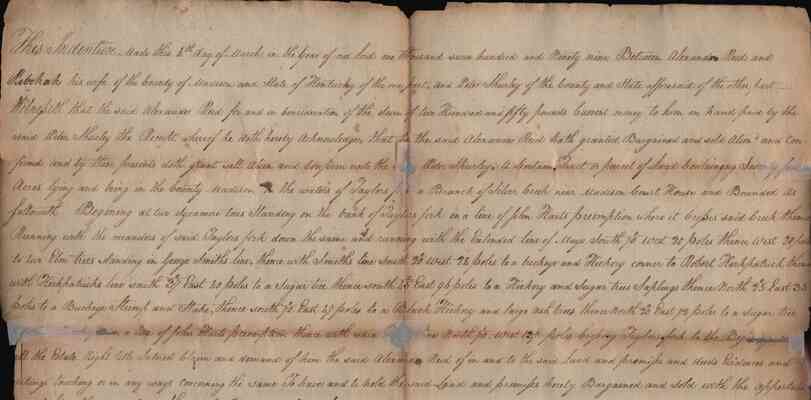 This Indenture Made this 4th day of March in the Year of our lord one thousand seven hundred and Ninety nine Between Alexander Reid and
Rebekah his wife of the County of Madison and State of Kentucky of the one part, and Peter Shurley of the County and State afforesaid of the other part
Witnesseth that the said Alexander Reid for and in consideration of the sum of two Hundred and fifty pounds Current money to him in hand paid by the
said Peter Shurley the Receipt whereof he doth hereby Acknowledge, Hath the said Alexander Reid hath granted Bargained and sold Alien'd and Con
firmed and by these presents doth grant sell Alien and Confirm unto the Peter Shurley A Certain Tract or parcel of Land Containing
Acres lying and being in the County Madison the waters of Taylors a Branch of Silver Creek near Madison Court House and Bounded As
followeth Begining at two Sycamore trees Standing on the bank of Taylors fork in a line of John Harts preemption where it crosses said Creek thence
Running with the meanders of said Taylors fork down the same and running with the Extended line of Mays South West 20 poles thence West 20 poles
to two Elm trees Standing in George Smiths line, thence with Smiths line South West 28 poles to a buckeye and Hickory corner to Robert Kirkpatrick thence
with Kirkpatricks line South East 20 poles to a Sugar tree thence South East 96 poles to a Hickory and Sugar tree Saplings thence North East
poles to a Buckeye Stump and Stake, thence South East 29 poles to a Hickory and large ash trees thence North East 72 poles to a Sugar tree
line of John Harts preemption thence with said line North West poles crossing Taylors fork to the
All the Estate Right title Interest Claim and demand of him the said Alexander Reid of in and to the said Land and premises and deeds Evidences and
writings touching or in any ways concerning the same To have and to hold the said Land and premises hereby Bargained and sold with the